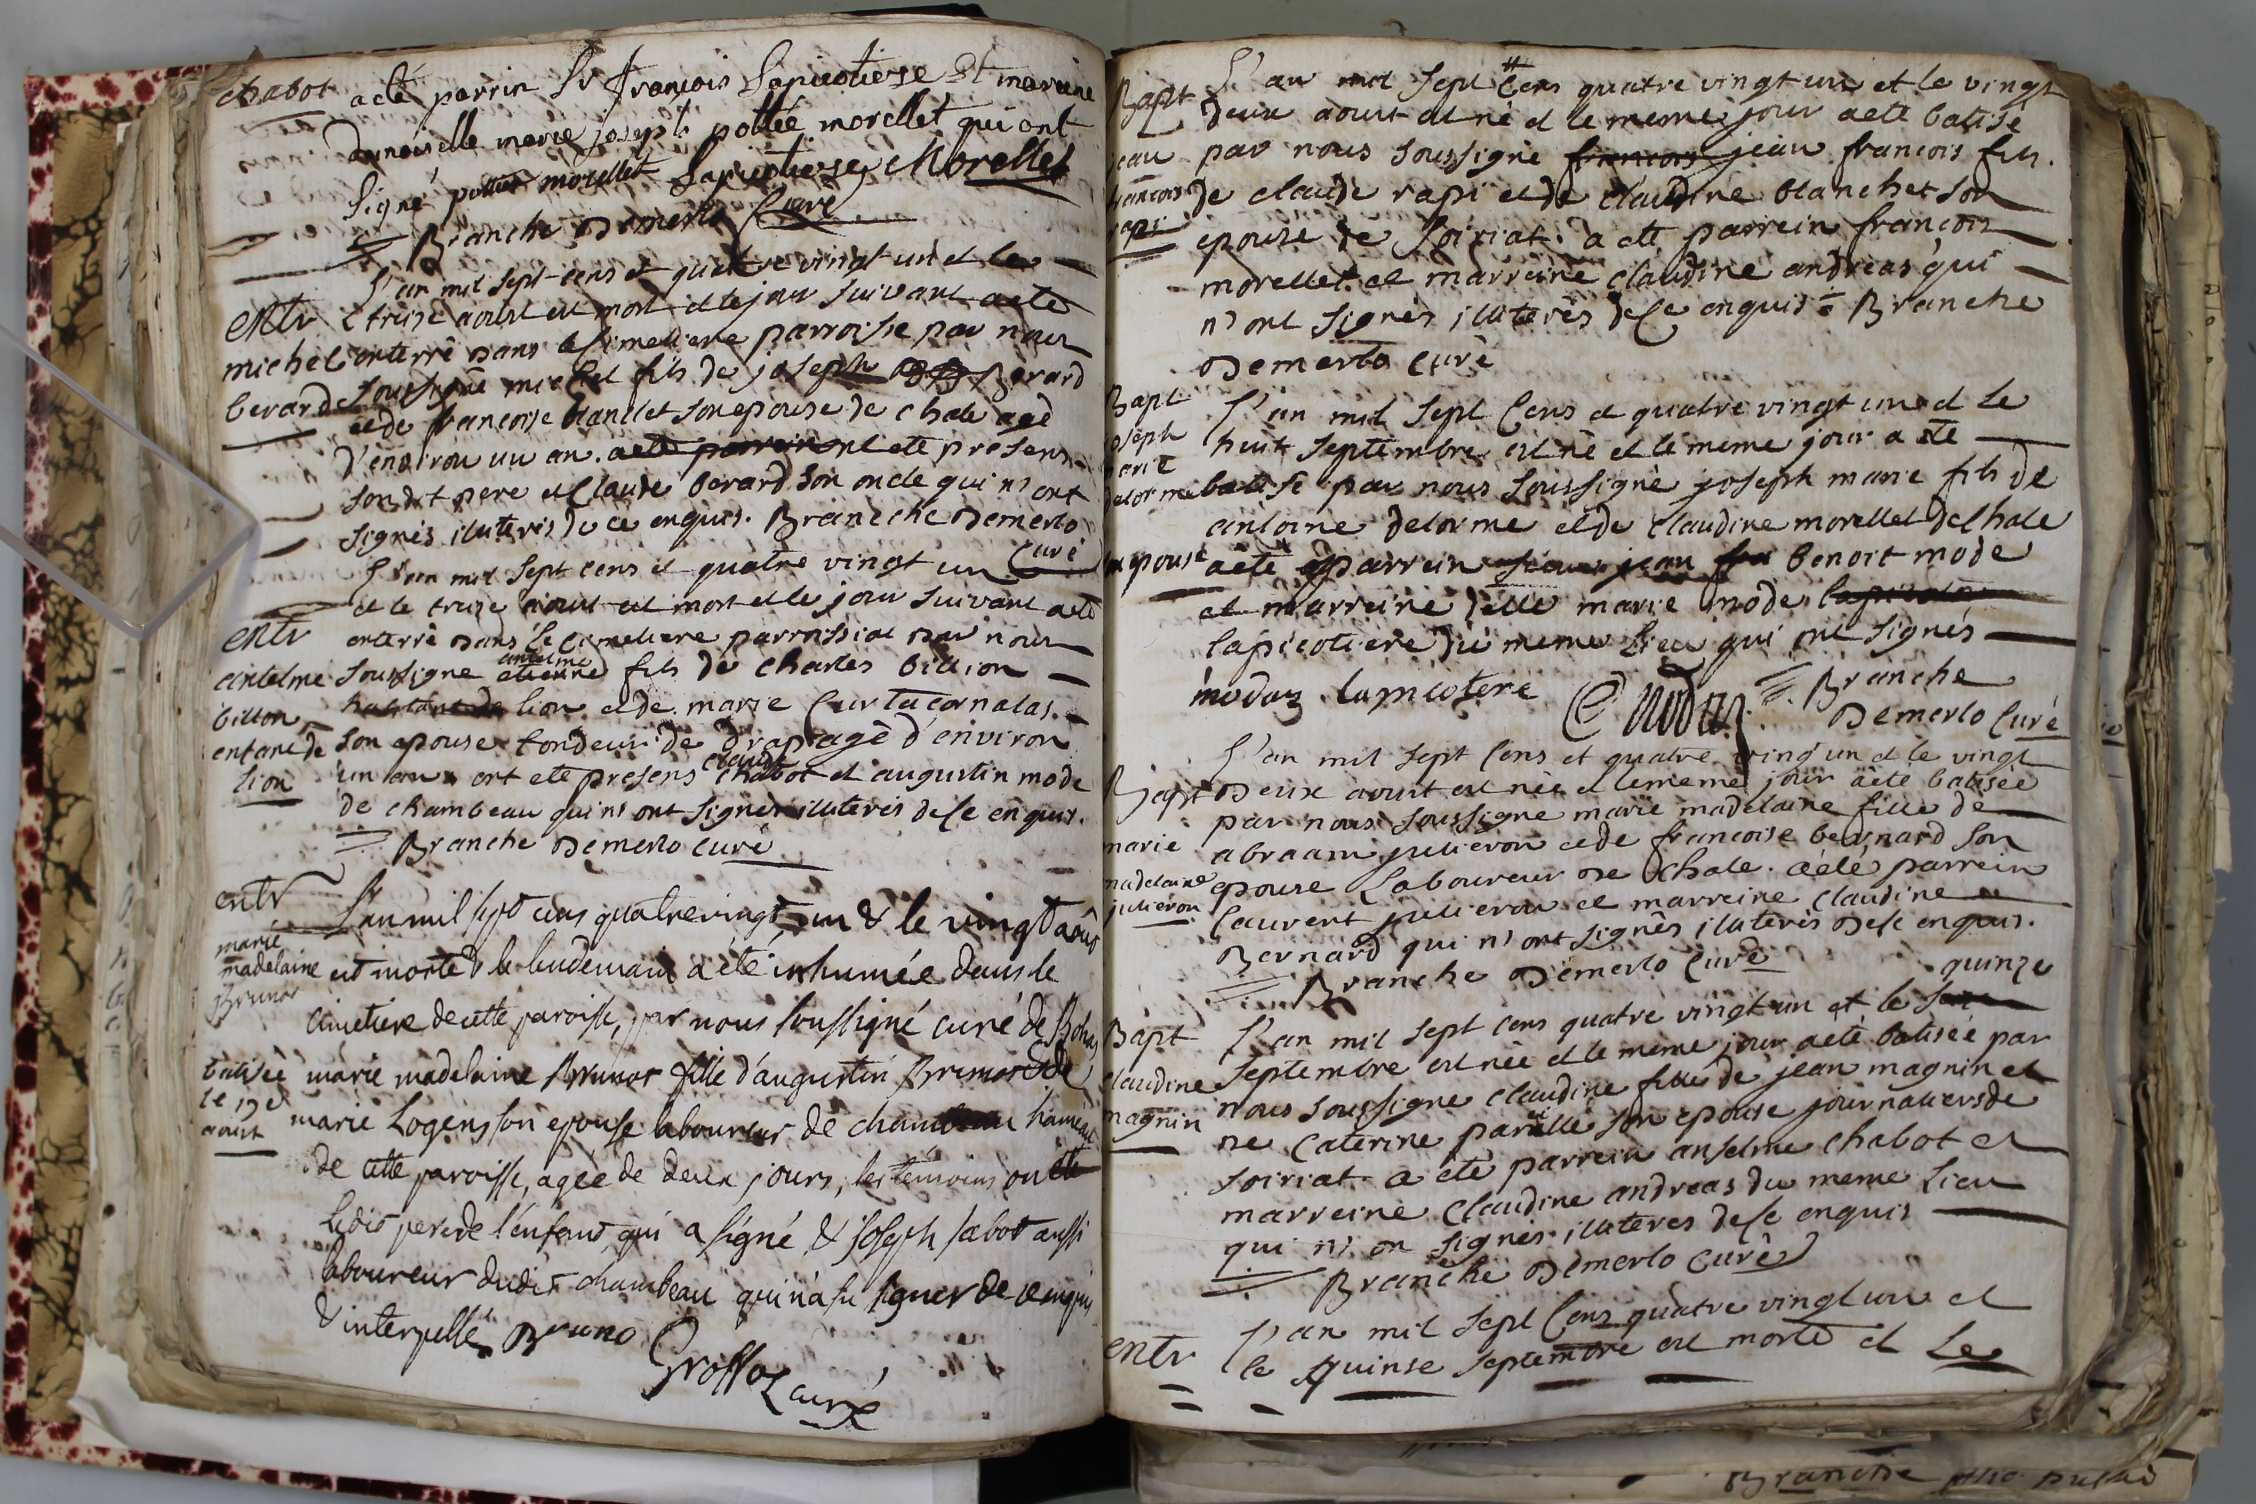 chabot
a eté parrin Sr françois Lapicotiere Et maraine
damoiselle marie joseph pottée morellet qui ont
Signé pottée morellet Lapicotiere Morellet
Branche Demerlo Curé
L'an mil sept cens et quatre vingt un et le
entr
treize aoust est mort et le jour suivant a eté
michel
enterré dans le Simetiere parroisse par nous
berard
soussigné michel fils de joseph Berard
et de françoise blanchet son epouse de chale agé
d'environ un an. a eté parrein ont eté présens
son dit pere et Claude berard son oncle qui n'ont
signés illiterés de ce enquis. Branche Demerlo
Curé
L'an mil sept cens et quatre vingt un
et le treize aoust est mort et le jour suivant a eté
entr
enterré dans le Cimetiere parroissial par nous
antelme
soussigné antelme etienne fils de Charles billion
billon
habitant de lion et de marie Curtacornalas
enfant de
son epouse tondeur de drap agé d'environ
lion
un an ont eté presens claude chabot et augustin mode
de chambeau qui n'ont signés illiterés de ce enquis.
Branche Demerlo curé
entr
L'an mil sept cens quatrevingt un & le vingt août
marie
madelaine
Brunot
est morte & le lendemain a été inhumée dans le
cimetiere de cette paroisse, par nous soussigné curé de Bohas
batisée
le 19e
aout
marie madelaine Brunot fille d'augustin Brunot & de
marie Logens son epouse laboureur de chambeau hameau
de cette paroisse, agée de deux jours, les temoins on été
ledit pere de l'enfant qui a signé & joseph sabot aussi
laboureur dudit chambeau qui n'a su signer de ce enquis
& interpellé Bruno
Grossoz curé
Bapt
jean
francois
rapi
L'an mil sept cens quatre vingt un et le vingt
deux aoust est né et le meme jour a eté batisé
par nous soussigné francois jean francois fils.
de claude rapi et de claudine blanchet son
epouse de Soiriat. a eté parrein françois
morellet et marreine claudine andreas qui
n'ont signés illiterés de ce enquis = Branche
Demerlo curé
Bapt
joseph
marie
delorme
L'an mil sept Cens et quatre vingt un et le
huit Septembre est né et le meme jour a eté
batisé par nous soussigné joseph marie fils de
antoine delorme et de claudine morellet de chale
son epouse
a eté parrein sieur jean benoit mode
et marreine delle marie mode lapicoti
lapicotiere du meme Lieu qui ont signés
modas lapicotiere C modas Branche
Demerlo Curé
L'an mil sept Cens et quatre vingt un et le vingt
Bapt
deux aoust est née et le meme jour a eté batisée
par nous soussigné marie madelaine fille de
marie
abraam juilleron et de francoise bernard son
madelaine
epouse Laboureur de Chale. a eté parrein
juilleron
Laurent juilleron et marreine claudine
Bernard qui n'ont signés illiterés de ce enquis.
Branche Demerlo Curé
quinze
Bapt
L'an mil sept cens quatre vingt un et le
septembre est née et le meme jour a eté batisée par
claudine
nous soussigné claudine fille de jean magnin et
magnin
de Caterine son epouse journaliers de
Soiriat a eté parrein anselme chabot et
marreine Claudine andreas du meme Lieu
qui n'on signés illiterés de ce enquis
Branche Demerlo Curé
L'an mil sept Cens quatre vingt un et
entr
le quinse septembre est morte et Le
Branche